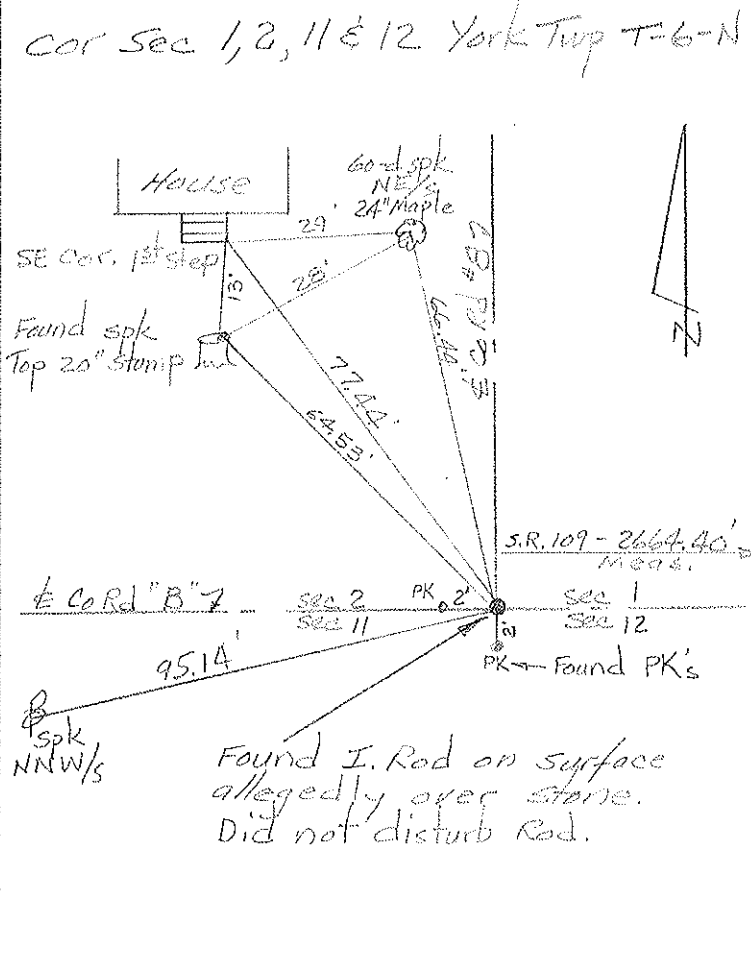 Cor Sec 1, 2, 11 & 12 York Twp T-6-N
House
60-d spk
NE/s
24" Maple
29'
SE Cor. 1st step
28'
13'
Found spk
Top 20" Stump
77.44'
64.53'
℄ Co Rd
N
S.R. 109 - 2664.40'
Meas.
℄ Co Rd "B" 7
sec 2
sec 11
PK
2'
sec 1
sec 12
2'
PK ← Found PK's
95.14'
spk
NNW/s
Found I. Rod on surface
allegedly over stone.
Did not disturb Rod.